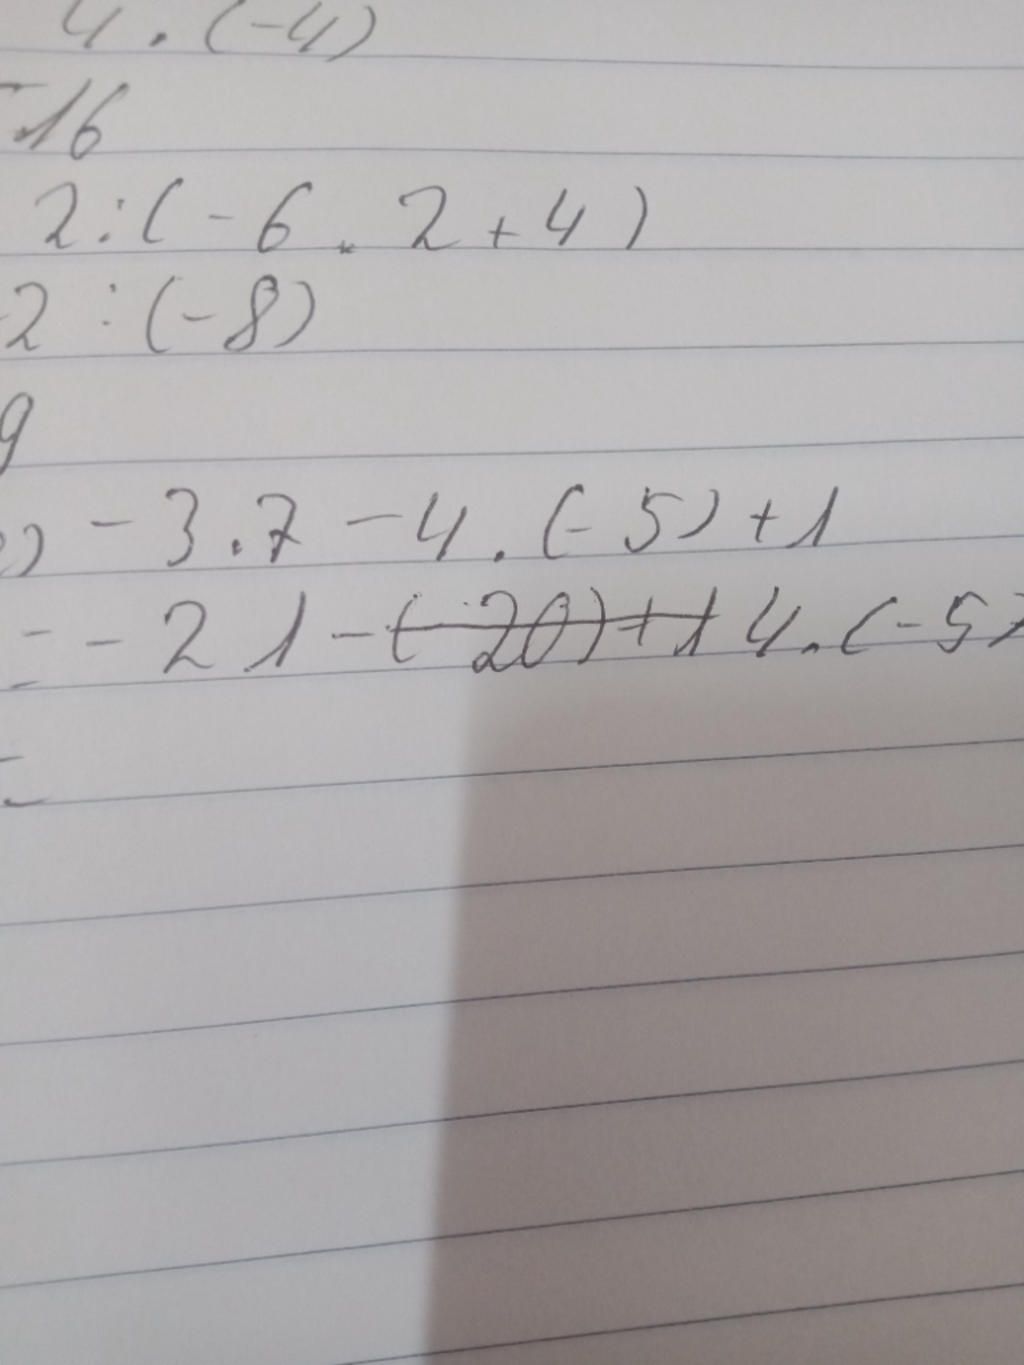 4 . (-4)
-16
2 : (-6 . 2 + 4)
-2 : (-8)
9
) -3 . 7 - 4 . (-5) + 1
= -21 - (-20) + 1 4 . (-5)
=